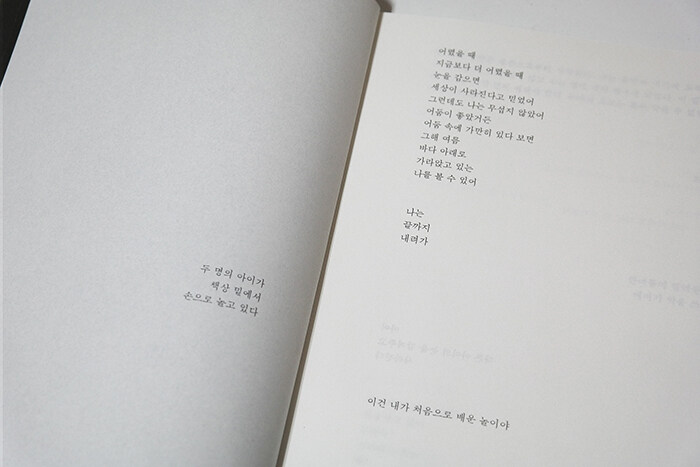 두 명의 아이가
책상 밑에서
손으로 놀고 있다
어렸을 때
지금보다 더 어렸을 때
눈을 감으면
세상이 사라진다고 믿었어
그런데도 나는 무섭지 않았어
어둠이 좋았거든
어둠 속에 가만히 있다 보면
그해 여름
바다 아래로
가라앉고 있는
나를 볼 수 있어
나는
끝까지
내려가
이건 내가 처음으로 배운 놀이야